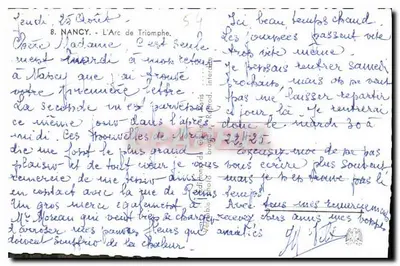 Jeudi, 25 Août.
8. NANCY. - L'Arc de Triomphe.
Chère Madame, C'est seule-
ment mardi à mon retour
à Nancy que j'ai trouvé
votre première lettre.
La seconde m'est parvenue
ce même jour dans l'après
midi. Ces nouvelles de
me font le plus grand
plaisir et de tout cœur je vous
remercie de me tenir ainsi
en contact avec la rue de Reims
Un gros merci également
Mr Moreau qui veut bien se charger
d'arroser mes pauvres fleurs qui
doivent souffrir de la chaleur.
Ici beau temps chaud.
Les journées passent vite
très vite même.
Je pensais rentrer samedi
prochain, mais on ne veut
pas me laisser repartir
ce jour là. Je rentrerai
donc le mardi 30 à
22h25
Excusez-moi de ne pas
vous écrire plus souvent
mais je ne trouve pas le
temps!
Avec tous mes remerciements
recevez chers amis mes bonnes
amitiés